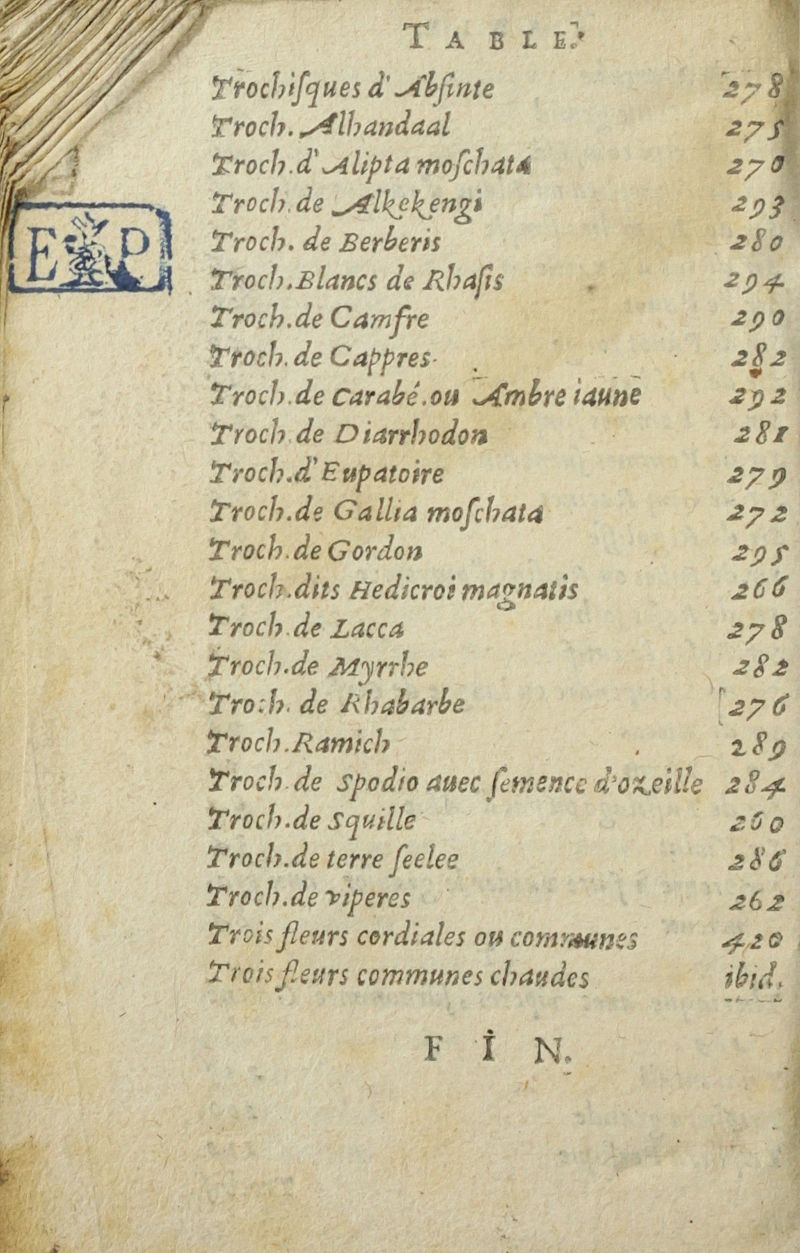 TABLE.
Trochiſques d'Abſinte 278
Troch. Alhandaal 275
Troch.d'Alipta moſchata 270
Troch.de Alkekengi 293
Troch. de Berberis 280
Troch.Blancs de Rhaſis 294
Troch.de Camfre 290
Troch.de Cappres 282
Troch.de Carabé.ou Ambre iaune 292
Troch.de Diarrhodon 281
Troch.d'Eupatoire 279
Troch.de Gallia moſchata 272
Troch.de Gordon 295
Troch.dits Hedicroi magnatis 266
Troch.de Lacca 278
Troch.de Myrrhe 282
Troch. de Rhabarbe 276
Troch.Ramich 289
Troch.de Spodio auec ſemence d'ozeille 284
Troch.de Squille 260
Troch.de terre ſeelee 286
Troch.de viperes 262
Trois fleurs cordiales ou communes 420
Trois fleurs communes chaudes ibid.
FIN.
E P